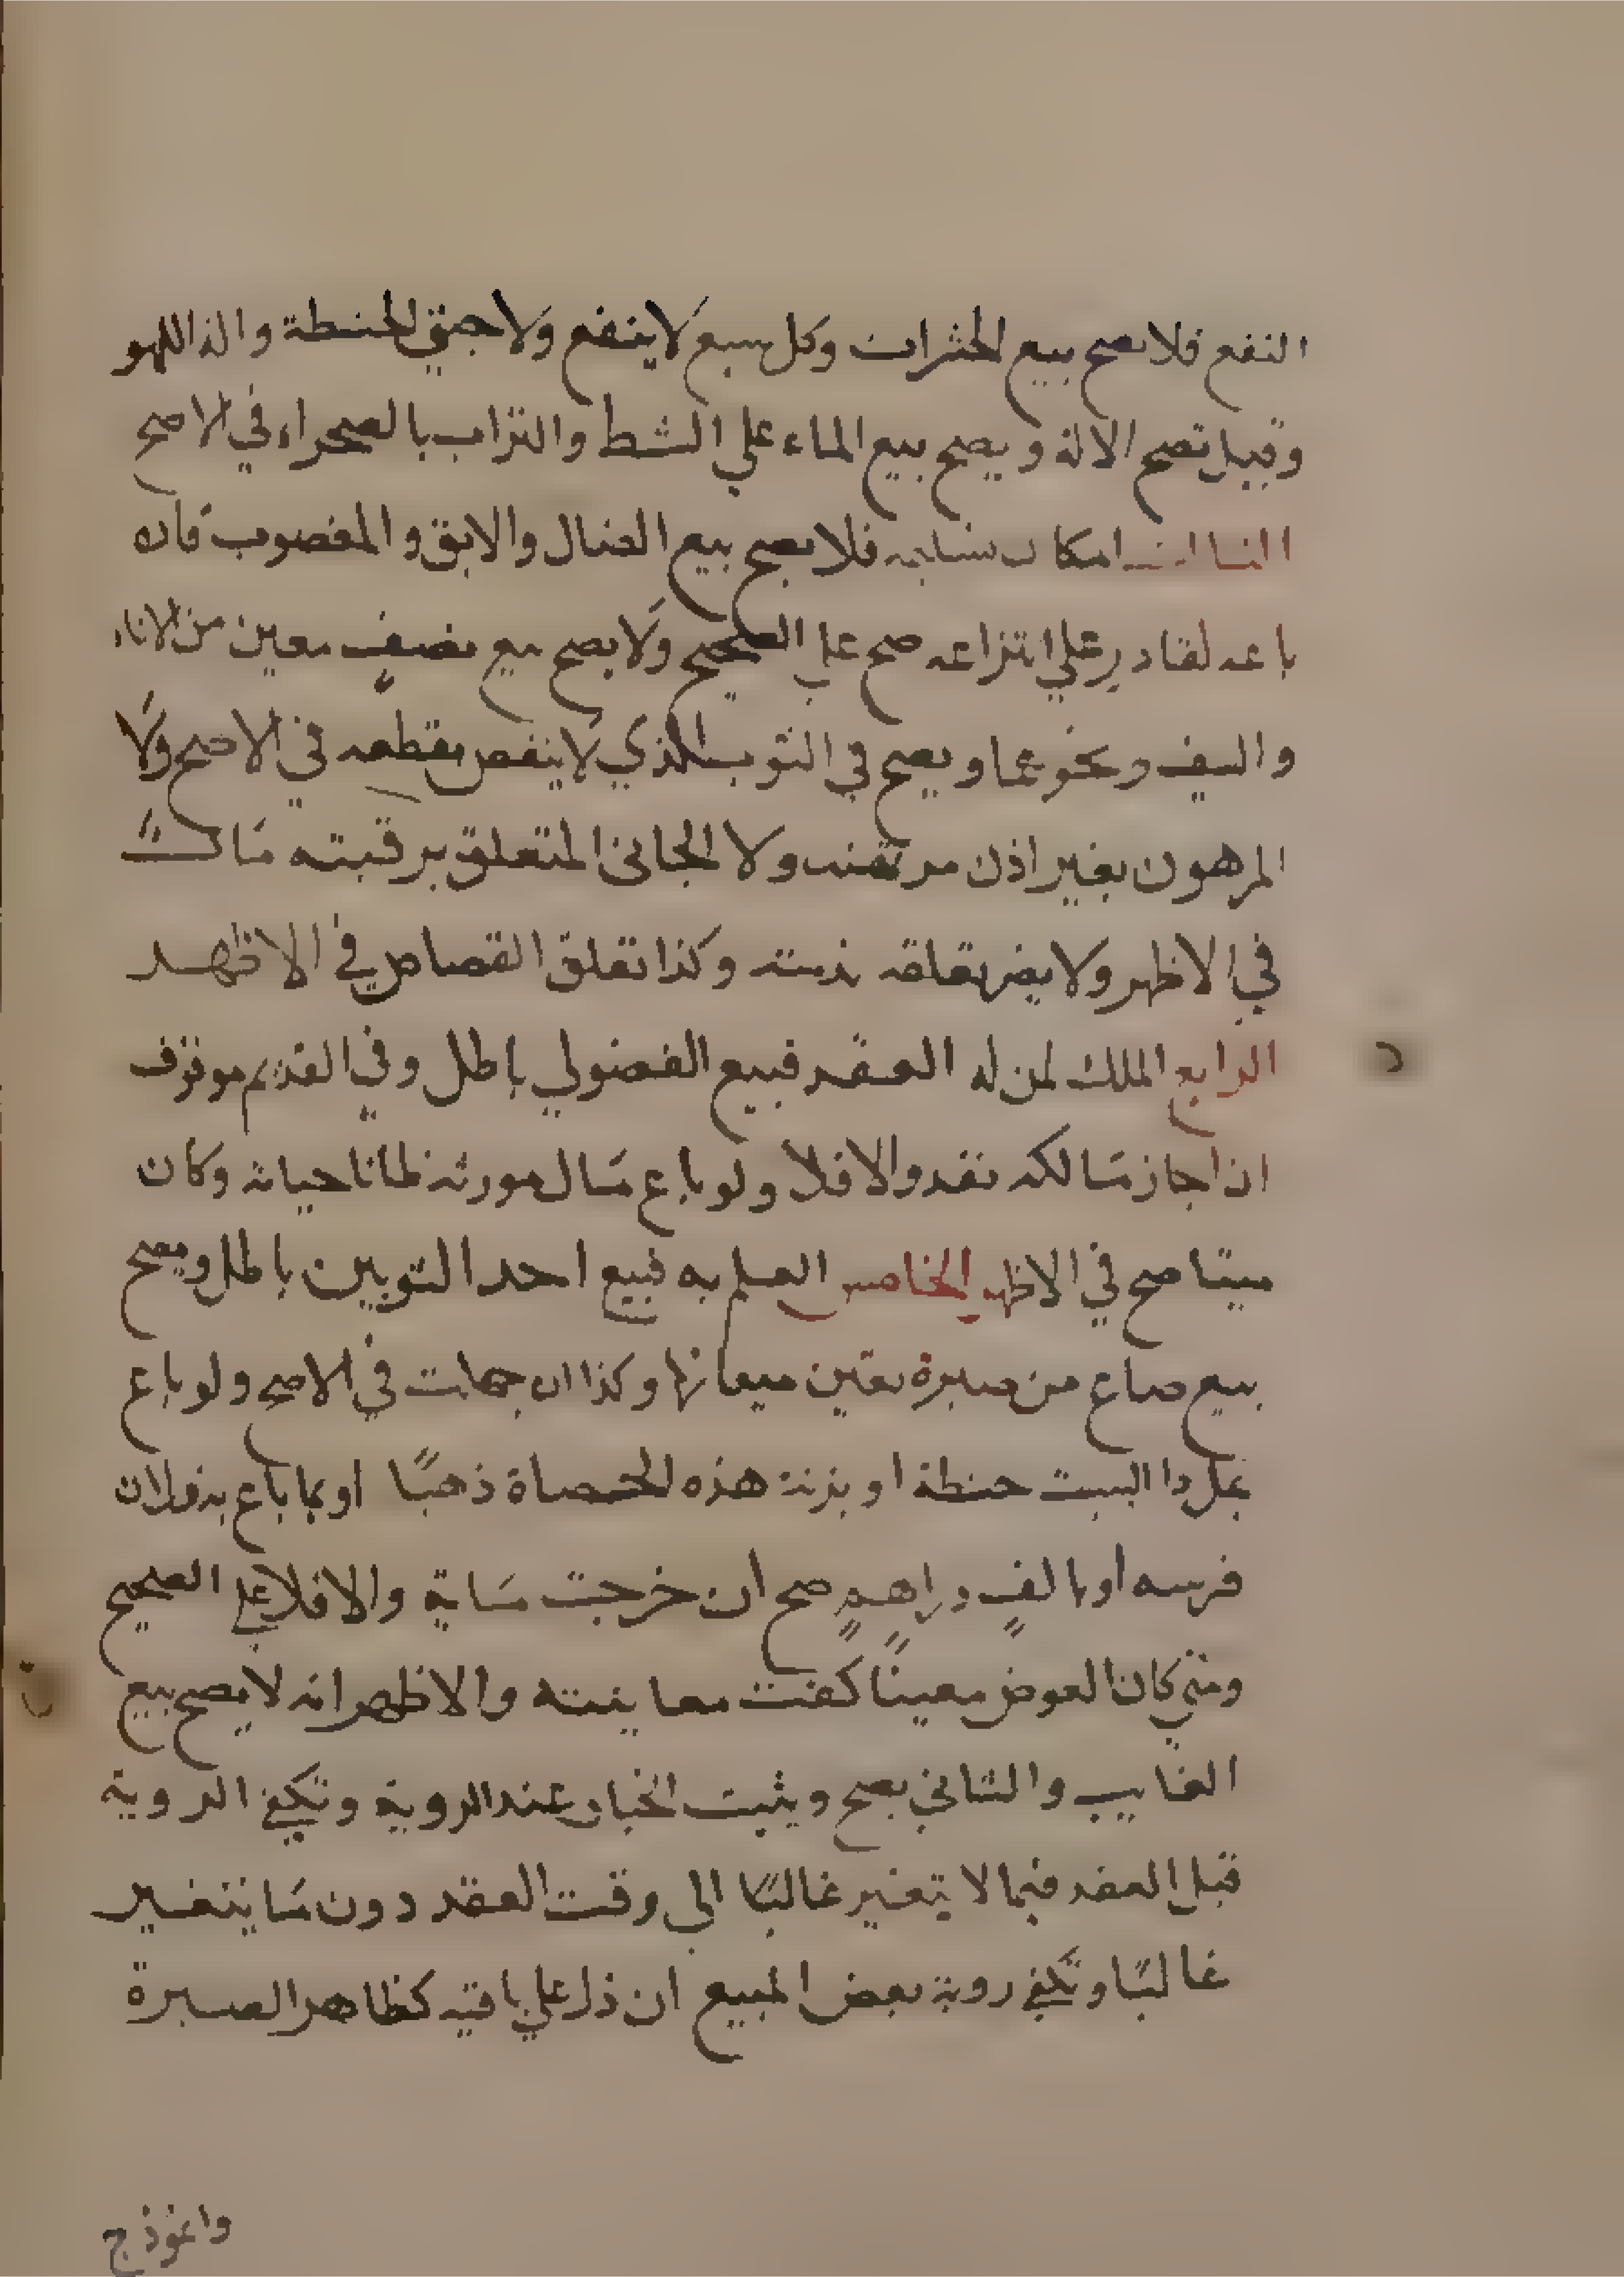 النفع فلا يصح بيع الحشرات وكل سبع لا ينفع ولا حبتي الحنطة والة اللهو
وقيل تصح الالة ويصح بيع الماء علي الشط والتراب بالصحراء في الاصح
الثالث امكان تسليمه فلا يصح بيع الضال والابق والمغصوب فان
باعه لقادر علي انتزاعه صح علي الصحيح ولا يصح بيع نصف معين من الاناء
والسيف ونحوهما ويصح في الثوب الذي لا ينقص بقطعه في الاصح ولا
المرهون بغير اذن مرتهنه ولا الجاني المتعلق برقبته مال
في الاظهر ولا يضر تعلقه بذمته وكذا تعلق القصاص في الاظهر
الرابع الملك لمن له العقد فبيع الفضولي باطل وفي القديم موقوف
ان اجاز مالكه نفد والا فلا ولو باع مال مورثه ظانا حياته وكان
ميتا صح في الاظهر الخامس العلم به فبيع احد الثوبين باطل ويصح
بيع صاع من صبرة تعلم صيعانها وكذا ان جهلت في الاصح ولو باع
بمل ذا البيت حنطة او بزنة هذه الحصاة ذهبًا او بما باع به فلان
فرسه او بالفٍ دراهمٍ صح ان خرجت ماية والا فلا علي الصحيح
ومتي كان العوض معينًا كفت معاينته والاظهر انه لا يصح بيع
الغايب والثاني يصح ويثبت الخيار عند الروية وتكفي الروية
قبل العقد فيما لا يتغير غالبًا الي وقت العقد دون ما يتغير
غالبًا وتكفي روية بعض المبيع ان دل علي باقيه كظاهر الصبرة
وانموذج